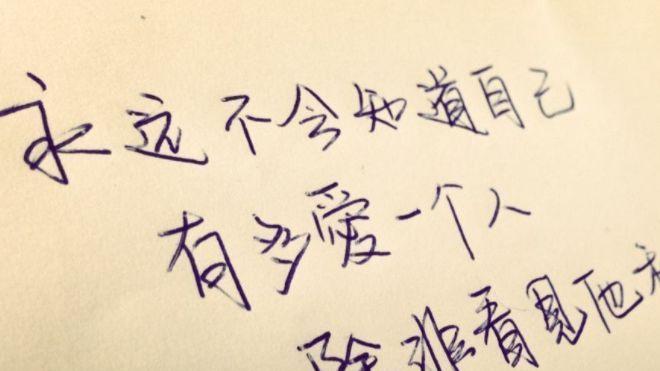 永远不会知道自己
有多爱一个人
除非看见他和